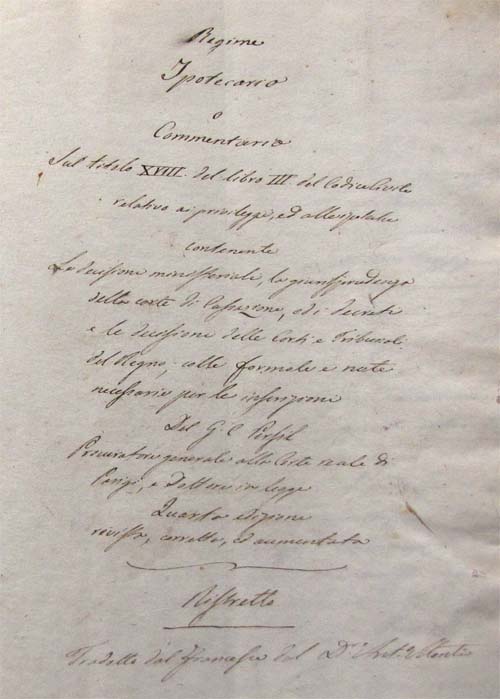 Regime
Ipotecario
o
Commentario
Sul titolo XVIII. del libro III del Codice Civile
relativo ai privileggi, ed alle ipoteche
contenente
Le decisione ministeriale, la giurisprudenza
della corte di Cassazione, ed i decreti
e le decisione delle Corti e Tribunali
del Regno, colle formole e note
necessarie per le inscrizione
Del G. C Persil
Procuratore generale alla Corte reale di
Parigi, e dottore in legge
Quarta edizione
rivista, corretta, ed aumentata
Ristretto
Tradotto dal francese dal D.r